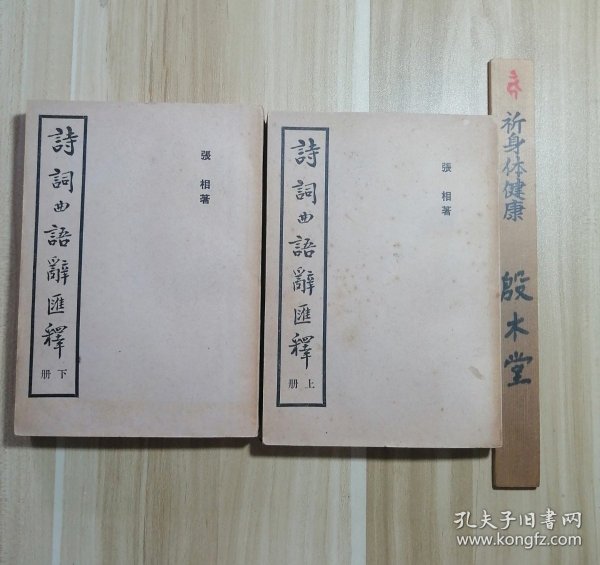 詩詞曲語辭匯釋
下册
張相著
詩詞曲語辭匯釋
上册
張相著
祈身体健康
殷木堂
孔夫子旧书网
www.kongfz.com